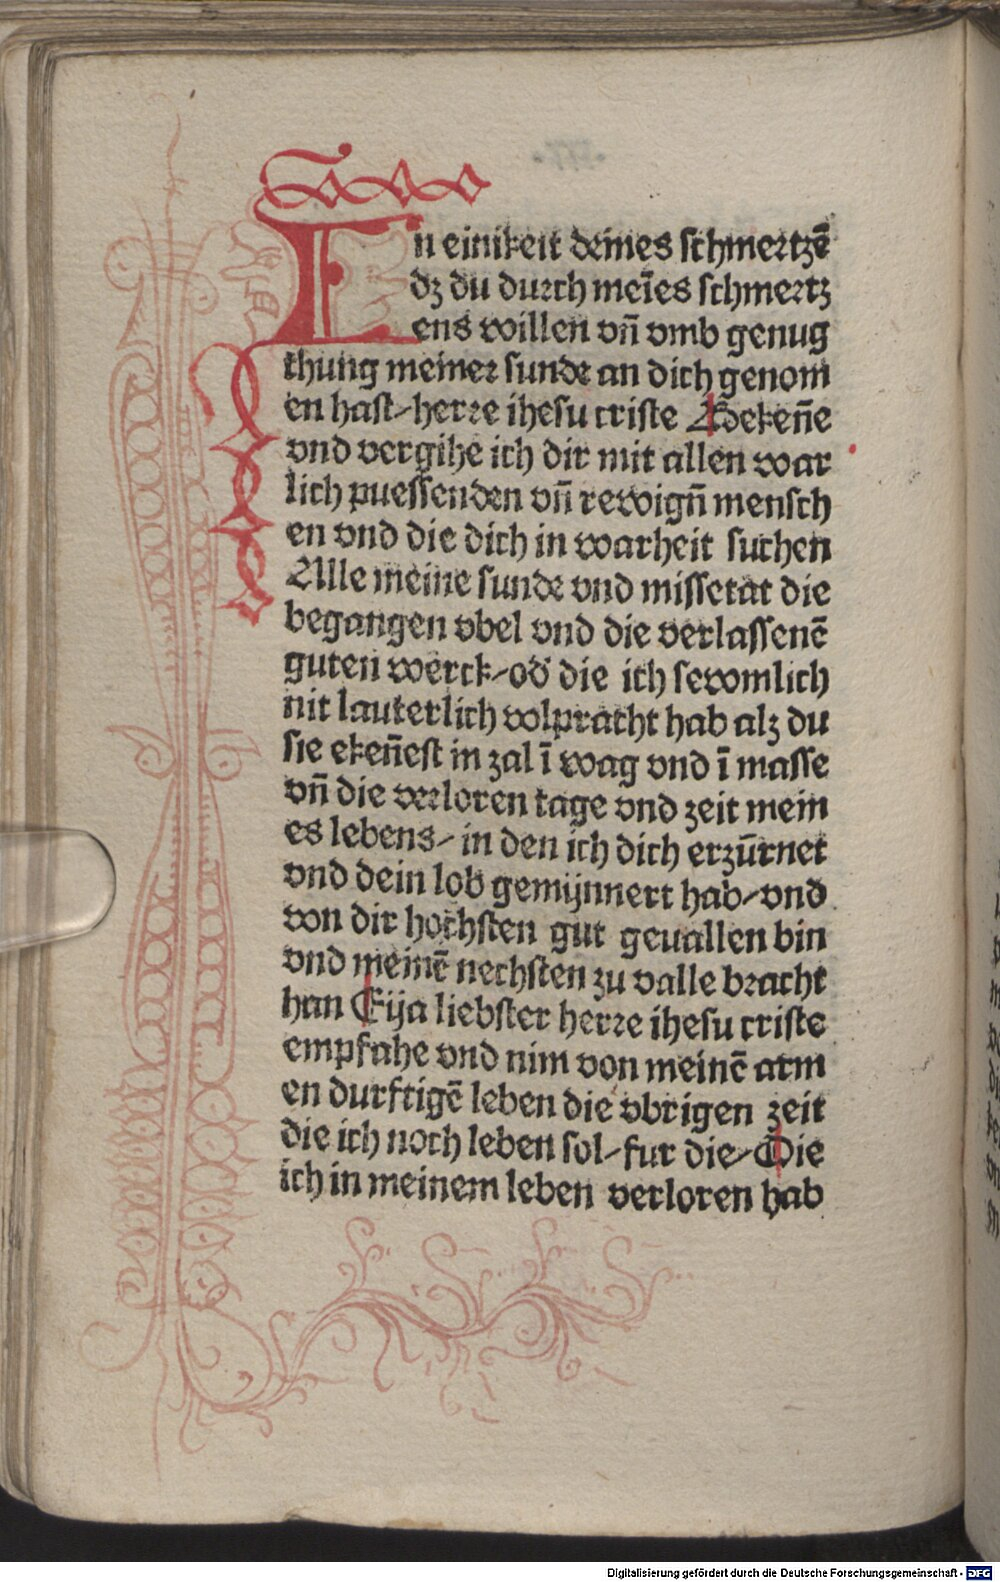 In einikeit deines schmertzē
dz du durch meīes schmertz
ens willen vn̄ vmb genug
thung meiner sunde an dich genom
en hast/herre ihesu criste Beken̄e
vnd vergihe ich dir mit allen war
lich puessenden vn̄ rewign̄ mensch
en vnd die dich in warheit suchen
Alle meine sunde vnd missetat die
begangen vbel vnd die verlassenē
guten werck/od̛ die ich sewmlich
nit lauterlich volpracht hab alz du
sie eken̄est in zal ī wag vnd ī masse
vn̄ die verloren tage vnd zeit mein
es lebens/in den ich dich erzūrnet
vnd dein lob gemynnert hab/vnd
von dir hochsten gut geuallen bin
vnd meinē nechsten zu valle bracht
han Eija liebster herre ihesu criste
empfahe vnd nim von meinē arm
en durftigē leben die vbrigen zeit
die ich noch leben sol/fur die/Die
ich in meinem leben verloren hab
Digitalisierung gefördert durch die Deutsche Forschungsgemeinschaft - DFG